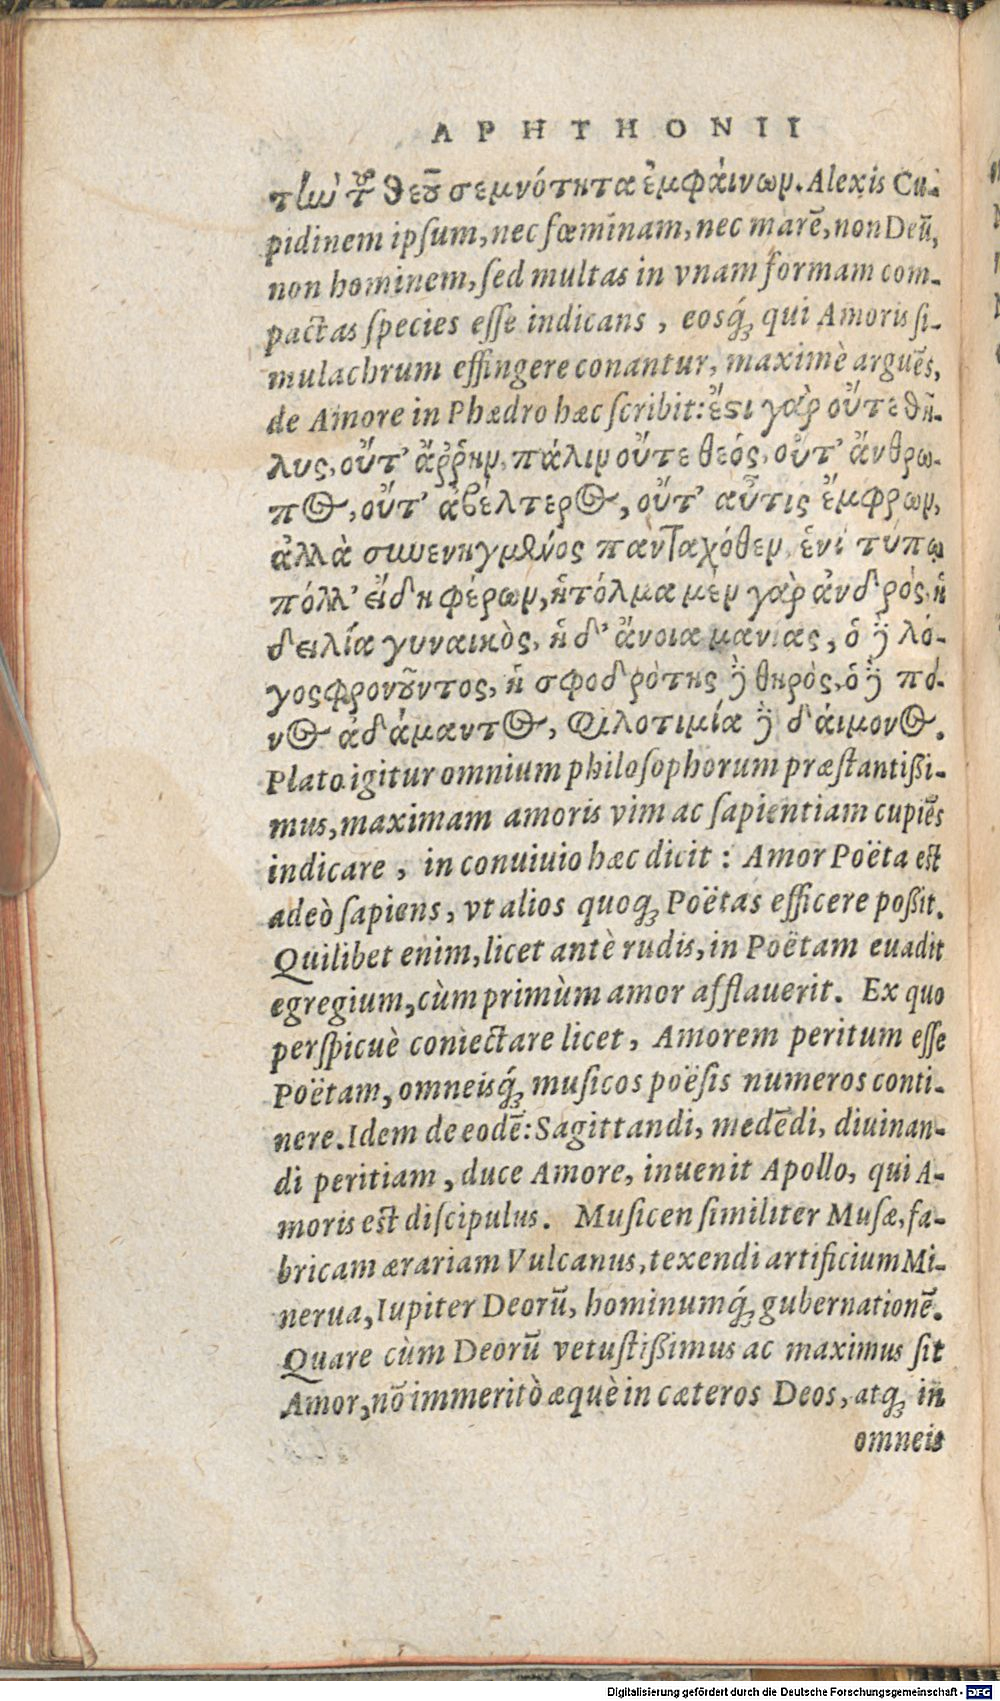 APHTHONII
τὼ τ͂ θεοῦ σεμνότητα ἐμφάινων. Alexis Cu-
pidinem ipsum, nec fœminam, nec marē, non Deū,
non hominem, sed multas in vnam formam com-
pactas species esse indicans, eosq́; qui Amoris si-
mulachrum effingere conantur, maximè arguēs,
de Amore in Phædro hæc scribit: ἔστι γὰρ οὔτε θῆ-
λυς, οὔτ' ἄῤῥην, πάλιν οὔτε θεός, οὔτ' ἄνθρω-
πος, οὔτ' ἀβέλτερος, οὔτ' αὖτις ἔμφρων,
ἀλλὰ συνενηγμένος πανταχόθεν, ἑνὶ τύπω
πόλλ' εἴδη φέρων, ἡ τόλμα μὲν γὰρ ἀνδρός, ἡ
δειλία γυναικὸς, ἡ δ' ἄνοια μανίας, ὁ δὲ λό-
γος φρονοῦντος, ἡ σφοδρότης δὲ θηρὸς, ὁ δὲ πό-
νος ἀδάμαντος, φιλοτιμία δὲ δάιμονος.
Plato igitur omnium philosophorum præstantißi-
mus, maximam amoris vim ac sapientiam cupiēs
indicare, in conuiuio hæc dicit: Amor Poëta est
adeò sapiens, vt alios quoq; Poëtas efficere poßit.
Quilibet enim, licet antè rudis, in Poëtam euadit
egregium, cùm primùm amor afflauerit. Ex quo
perspicuè coniectare licet, Amorem peritum esse
Poëtam, omneisq́; musicos poësis numeros conti-
nere. Idem de eodē: Sagittandi, medēdi, diuinan-
di peritiam, duce Amore, inuenit Apollo, qui A-
moris est discipulus. Musicen similiter Musæ, fa-
bricam ærariam Vulcanus, texendi artificium Mi-
nerua, Iupiter Deorū, hominumq́; gubernationē.
Quare cùm Deorū vetustißimus ac maximus sit
Amor, nō immeritò æquè in cæteros Deos, atq; in
omneis
Digitalisierung gefördert durch die Deutsche Forschungsgemeinschaft - DFG